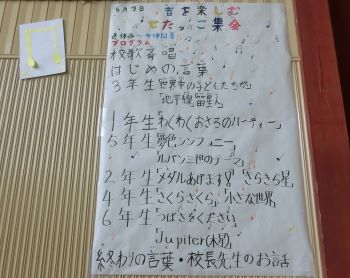 6月7日 音を楽しむ
せたっこ集会
プログラム
校歌斉唱
はじめの言葉
3年生「世界中の子どもたちが」
「地平線
1年生「わくわくおさるのパーティー」
5年生「夢色シンフォニー」
「ルパン三世のテーマ」
2年生「メダルあげます」「きらきら星」
4年生「さくらさくら」「小さな世界」
6年生「つばさをください」
「Jupiter(木星)」
終わりの言葉・校長先生のお話